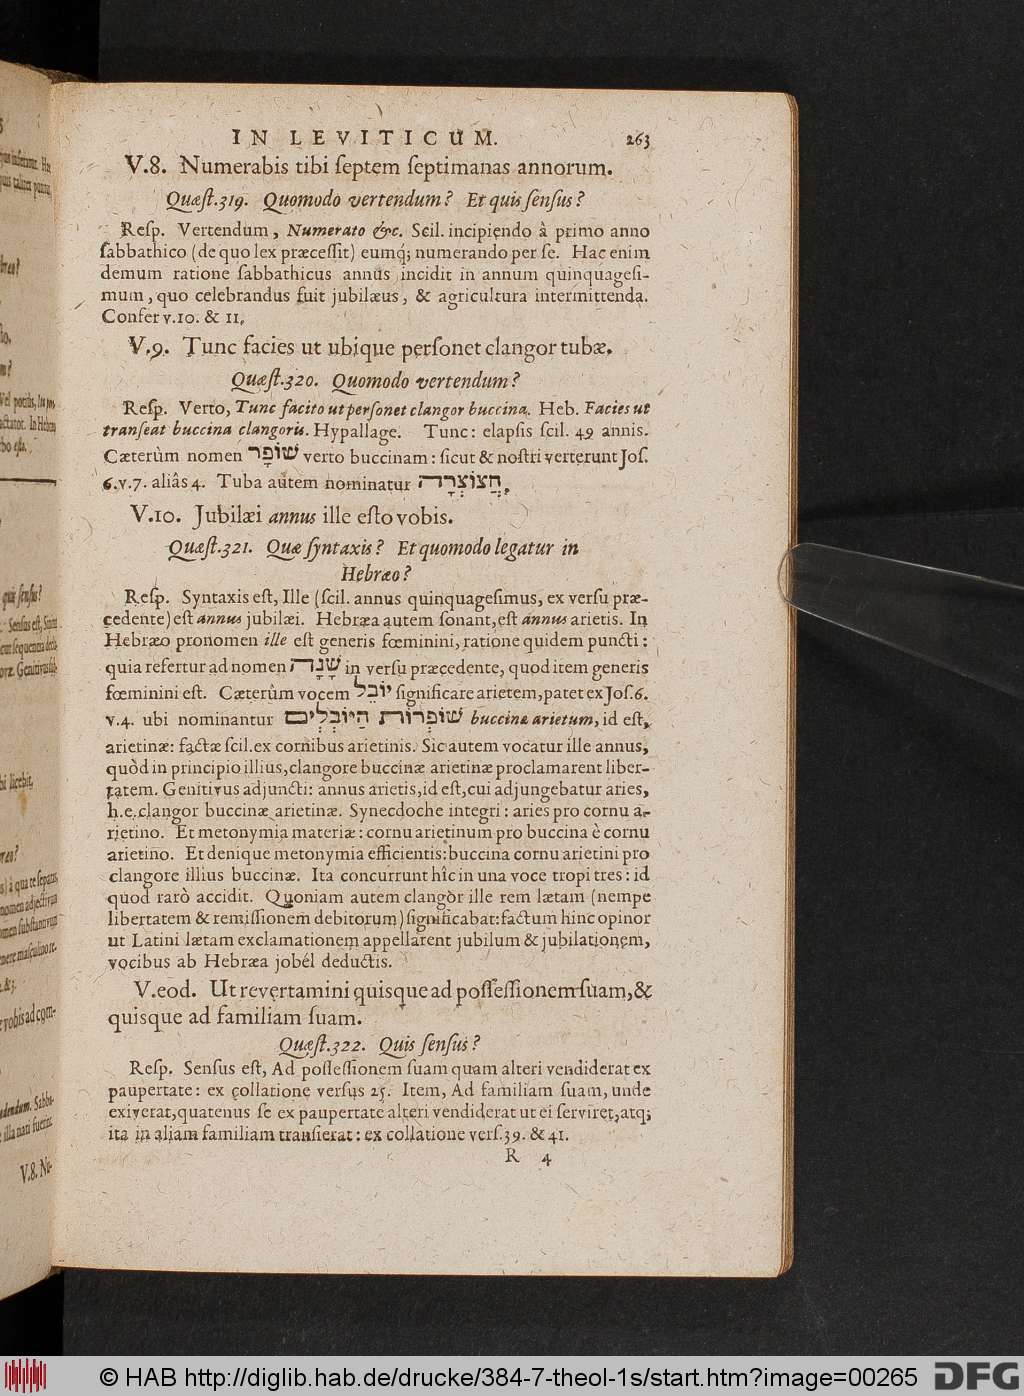 IN LEVITICUM. 263
V.8. Numerabis tibi ſeptem ſeptimanas annorum.
Quæſt.319. Quomodo vertendum? Et quis ſenſus?
Reſp. Vertendum, Numerato &c. Scil. incipiendo à primo anno
ſabbathico (de quo lex præceſſit) eumq́; numerando per ſe. Hac enim
demum ratione ſabbathicus annus incidit in annum quinquageſi-
mum, quo celebrandus fuit jubilæus, & agricultura intermittenda.
Confer v.10. & 11.
V.9. Tunc facies ut ubique perſonet clangor tubæ.
Quæſt.320. Quomodo vertendum?
Reſp. Verto, Tunc facito ut perſonet clangor buccina. Heb. Facies ut
tranſeat buccina clangoris. Hypallage. Tunc: elapſis ſcil. 49 annis.
Cæterùm nomen שׁוֹפָר verto buccinam: ſicut & noſtri verterunt Joſ.
6.v.7. aliâs 4. Tuba autem nominatur חֲצוֹצְרָה.
V.10. Jubilæi annus ille eſto vobis.
Quæſt.321. Quæ ſyntaxis? Et quomodo legatur in
Hebræo?
Reſp. Syntaxis eſt, Ille (ſcil. annus quinquageſimus, ex verſu præ-
cedente) eſt annus jubilæi. Hebræa autem ſonant, eſt annus arietis. In
Hebræo pronomen ille eſt generis fœminini, ratione quidem puncti:
quia refertur ad nomen שָׁנָה in verſu præcedente, quod item generis
fœminini eſt. Cæterùm vocem יוֹבֵל ſignificare arietem, patet ex Joſ.6.
v.4. ubi nominantur שׁוֹפְרוֹת הַיּוֹבְלִים buccinæ arietum, id eſt,
arietinæ: factæ ſcil. ex cornibus arietinis. Sic autem vocatur ille annus,
quòd in principio illius, clangore buccinæ arietinæ proclamarent liber-
tatem. Genitivus adjuncti: annus arietis, id eſt, cui adjungebatur aries,
h.e. clangor buccinæ arietinæ. Synecdoche integri: aries pro cornu a-
rietino. Et metonymia materiæ: cornu arietinum pro buccina è cornu
arietino. Et denique metonymia efficientis: buccina cornu arietini pro
clangore illius buccinæ. Ita concurrunt hîc in una voce tropi tres: id
quod rarò accidit. Quoniam autem clangor ille rem lætam (nempe
libertatem & remiſſionem debitorum) ſignificabat: factum hinc opinor
ut Latini lætam exclamationem appellarent jubilum & jubilationem,
vocibus ab Hebræa jobél deductis.
V.eod. Ut revertamini quisque ad poſſeſſionem ſuam, &
quisque ad familiam ſuam.
Quæſt.322. Quis ſenſus?
Reſp. Senſus eſt, Ad poſſeſſionem ſuam quam alteri vendiderat ex
paupertate: ex collatione verſus 25. Item, Ad familiam ſuam, unde
exiverat, quatenus ſe ex paupertate alteri vendiderat ut ei ſerviret, atq;
ita in aliam familiam tranſierat: ex collatione verſ.39. & 41.
R 4
© HAB http://diglib.hab.de/drucke/384-7-theol-1s/start.htm?image=00265
DFG